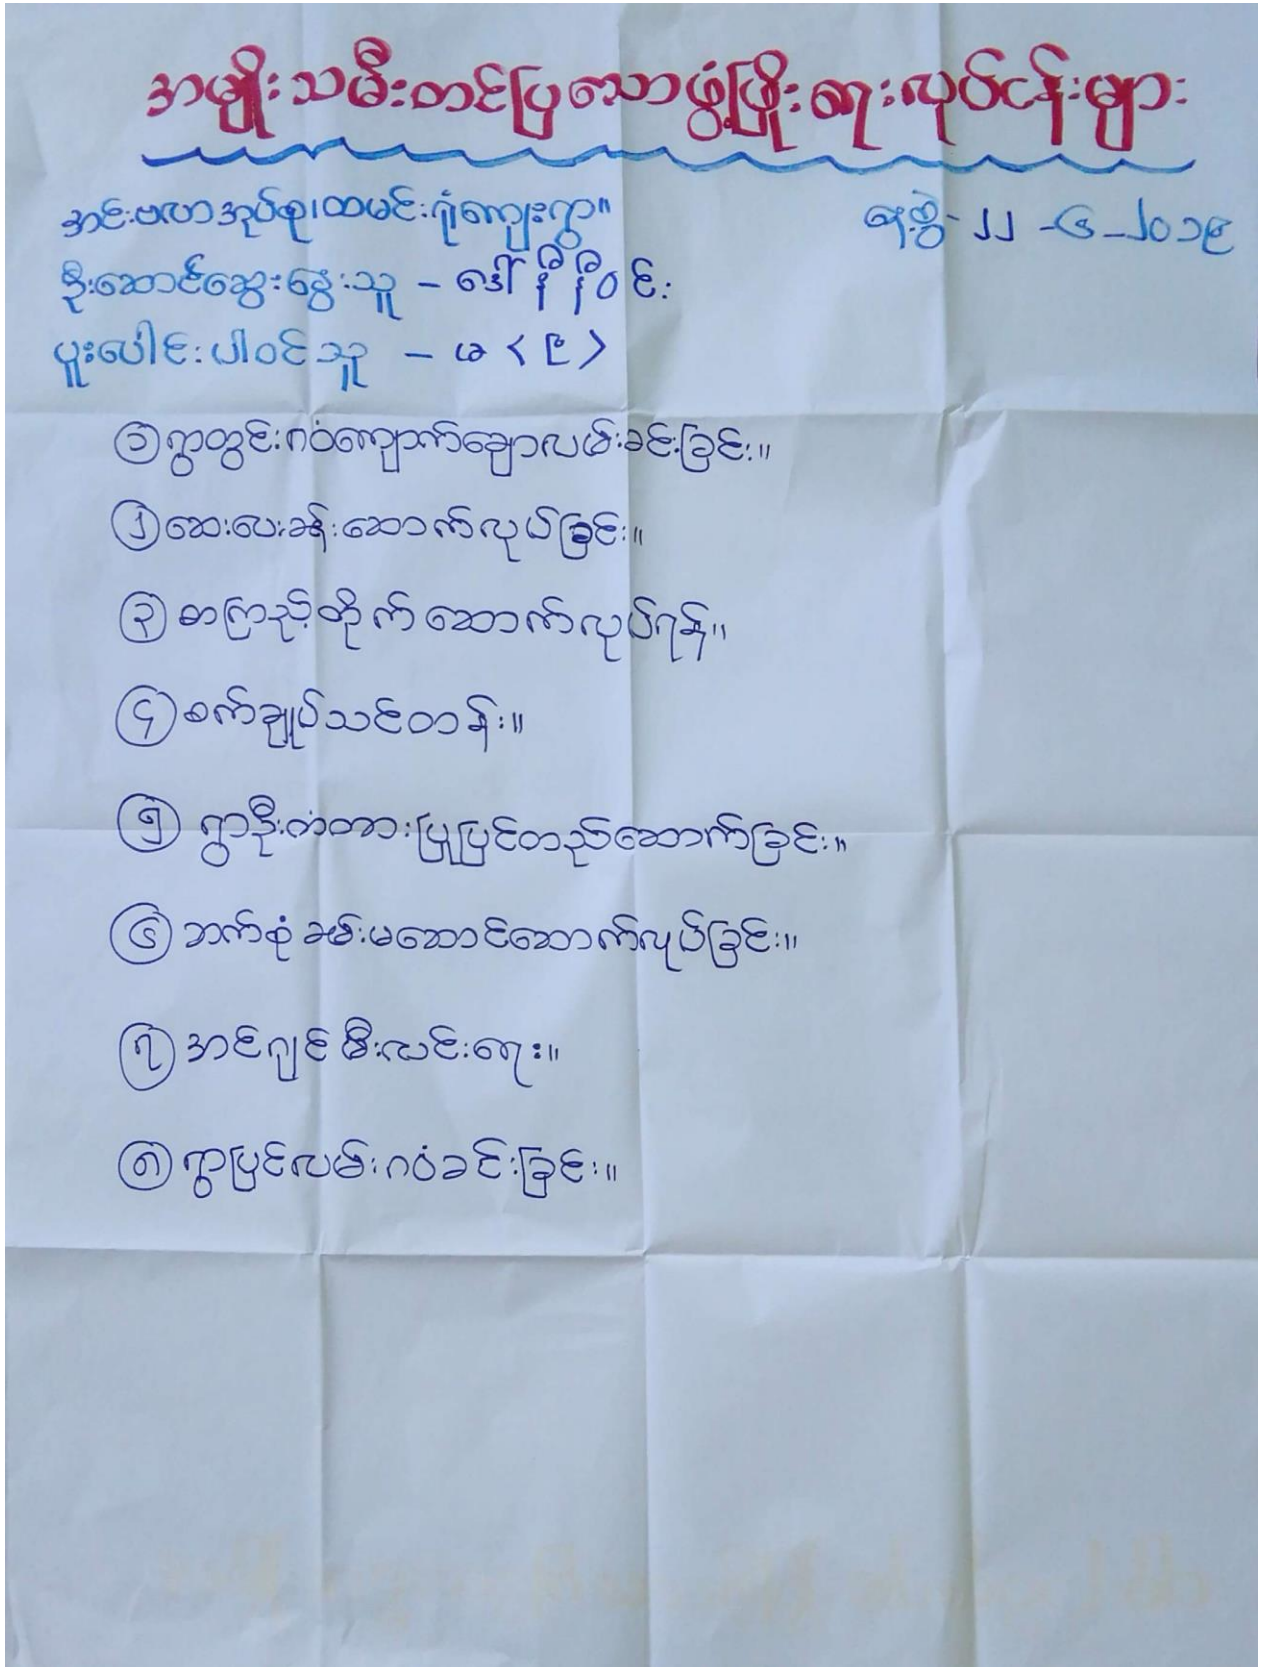 အမျိုးသမီးတင်ပြသောဖွံ့ဖြိုးရေးလုပ်ငန်းများ
အင်းဗလာအုပ်စု၊ထမင်းရုံကျေးရွာ။
နေ့စွဲ-၂၂-၆-၂၀၁၉
ဦးဆောင်ဆွေးနွေးသူ - ဒေါ်နီနီဝင်း
ပူးပေါင်းပါဝင်သူ - မ <၉>
၁ ရွာတွင်းဂဝံကျောက်ချောလမ်းခင်းခြင်း။
၂ ဆေးပေးခန်းဆောက်လုပ်ခြင်း။
၃ စာကြည့်တိုက်ဆောက်လုပ်ရန်။
၄ စက်ချုပ်သင်တန်း။
၅ ရွာဦးတံတားပြုပြင်တည်ဆောက်ခြင်း။
၆ ဘက်စုံခမ်းမဆောင်ဆောက်လုပ်ခြင်း။
၇ အင်ဂျင်မီးလင်းရေး။
၈ ရွာပြင်လမ်းဂဝံခင်းခြင်း။